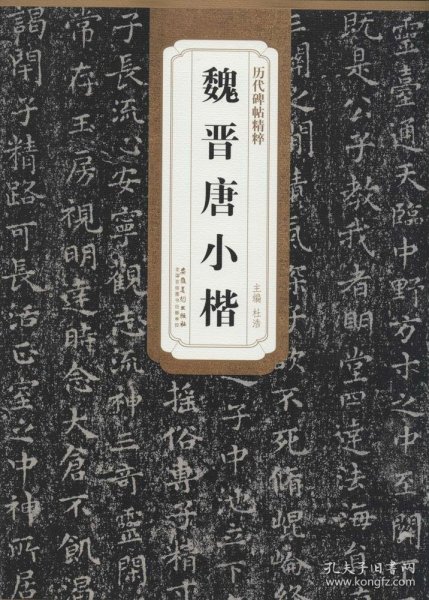 历代碑帖精粹
魏晋唐小楷
主编 杜浩
安徽美术出版社
全国百佳图书出版单位
靈臺通天臨中野方寸之中至關下
既是公子教我者明堂四達法海員
子欲不死脩崐崘
子中池立下
摇俗專子精寸
子長流心安寧觀志流神三奇靈閑
常存玉房視明達時念大倉不飢渴
謁閉子精路可長活正室之中神所居
孔夫子旧书网
www.kongfz.com